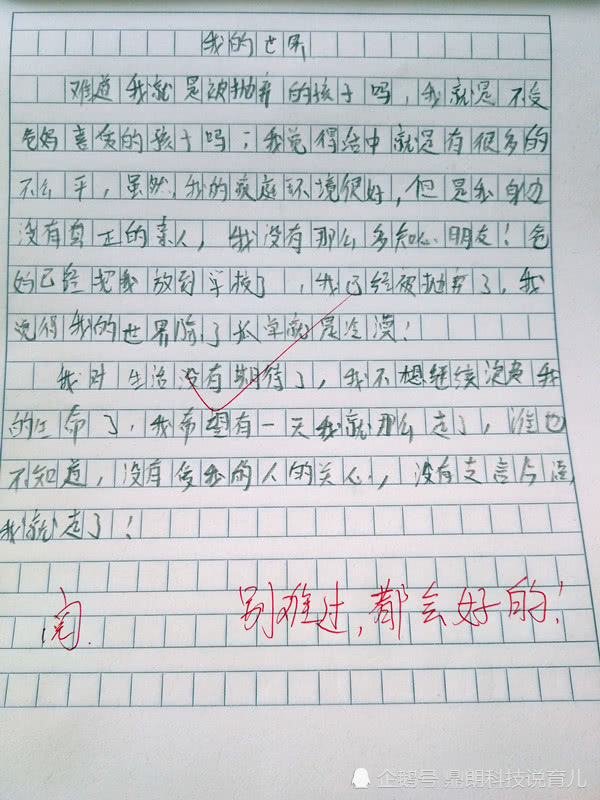 我的世界
难道我就是被抛弃的孩子吗,我就是不受
爸妈喜爱的孩子吗;我觉得活中就是有很多的
不公平,虽然,我的家庭环境很好,但是我身边
没有真正的亲人,我没有那么多知心朋友!爸
妈已经把我放到学校了,我已经被抛弃了,我
觉得我的世界除了孤单就是冷漠!
我对生活没有期待了,我不想继续浪费我
的生命了,我希望有一天我就那么走了,谁也
不知道,没有爱我的人的关心,没有
我就走了!
阅. 别难过,都会好的!
企鹅号 鼎朗科技说育儿